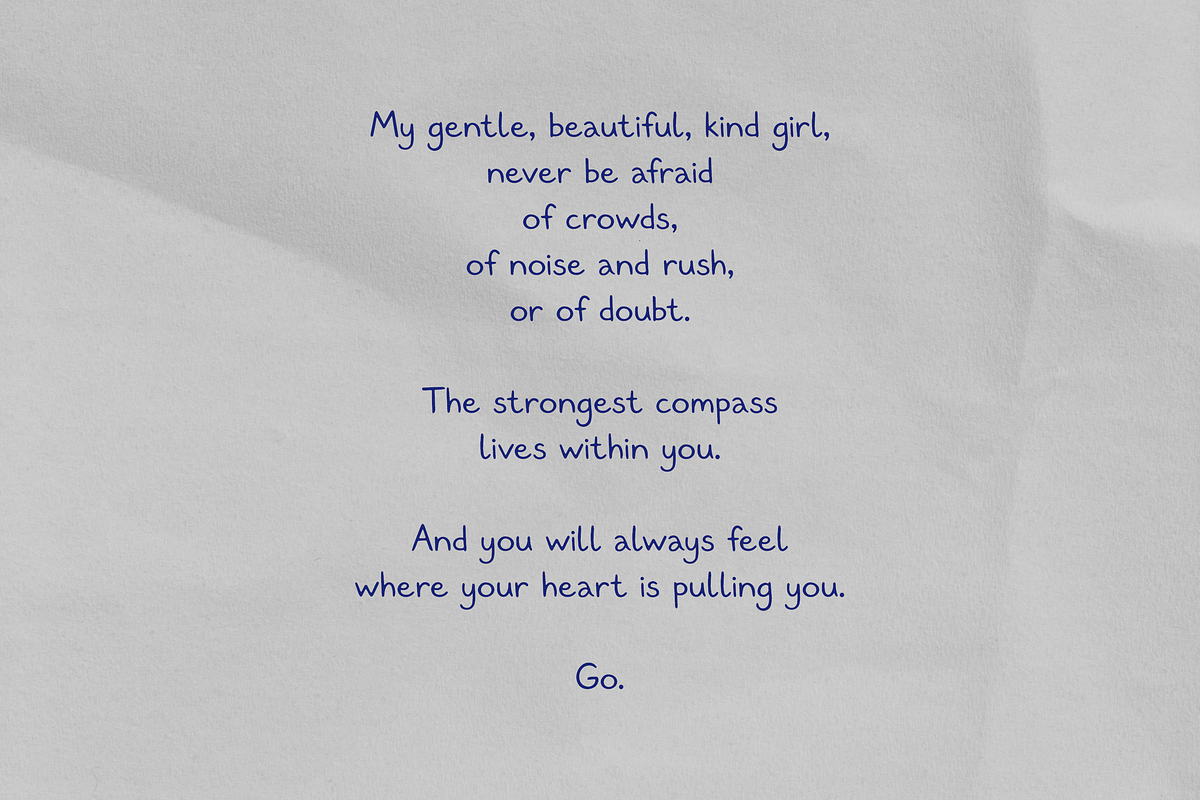 My gentle, beautiful, kind girl,
never be afraid
of crowds,
of noise and rush,
or of doubt.
The strongest compass
lives within you.
And you will always feel
where your heart is pulling you.
Go.